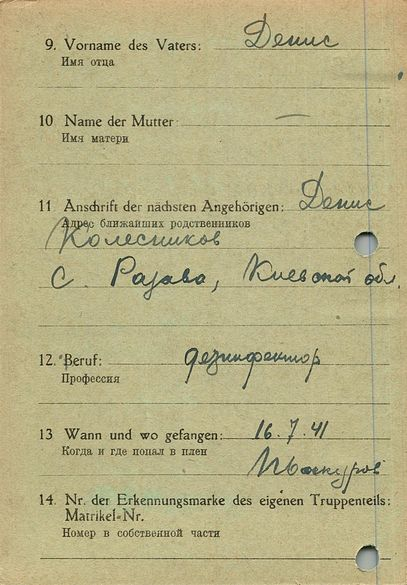 9. Vorname des Vaters: Денис
Имя отца
10 Name der Mutter: —
Имя матери
11 Anschrift der nächsten Angehörigen: Денис
Адрес ближайших родственников
Колесников
с. Ражава, Киевской обл.
12. Beruf: дезинфектор
Профессия
13 Wann und wo gefangen: 16.7.41
Когда и где попал в плен
14. Nr. der Erkennungsmarke des eigenen Truppenteils:
Matrikel-Nr.
Номер в собственной части